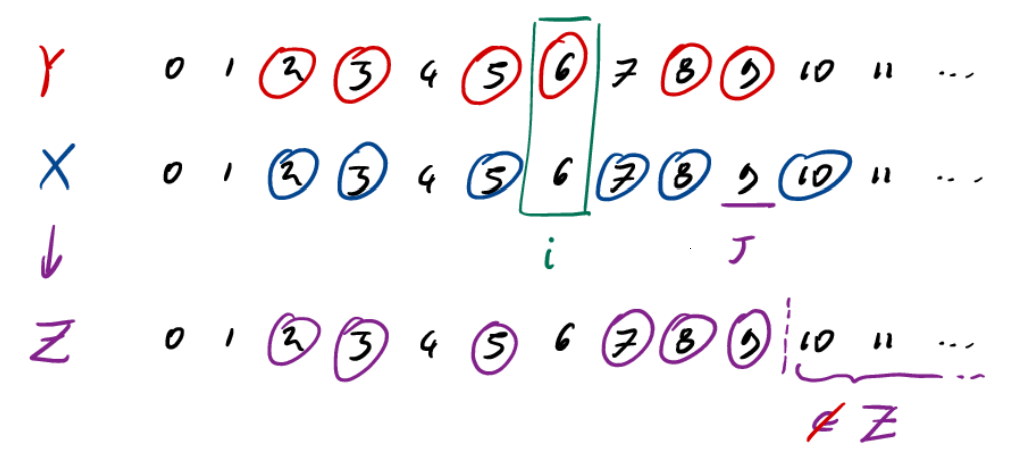 Y 0 1 2 3 4 5 6 7 8 9 10 11 ...
X 0 1 2 3 4 5 6 7 8 9 10 11 ...
↓ i J
Z 0 1 2 3 4 5 6 7 8 9 10 11 ...
∉ Z